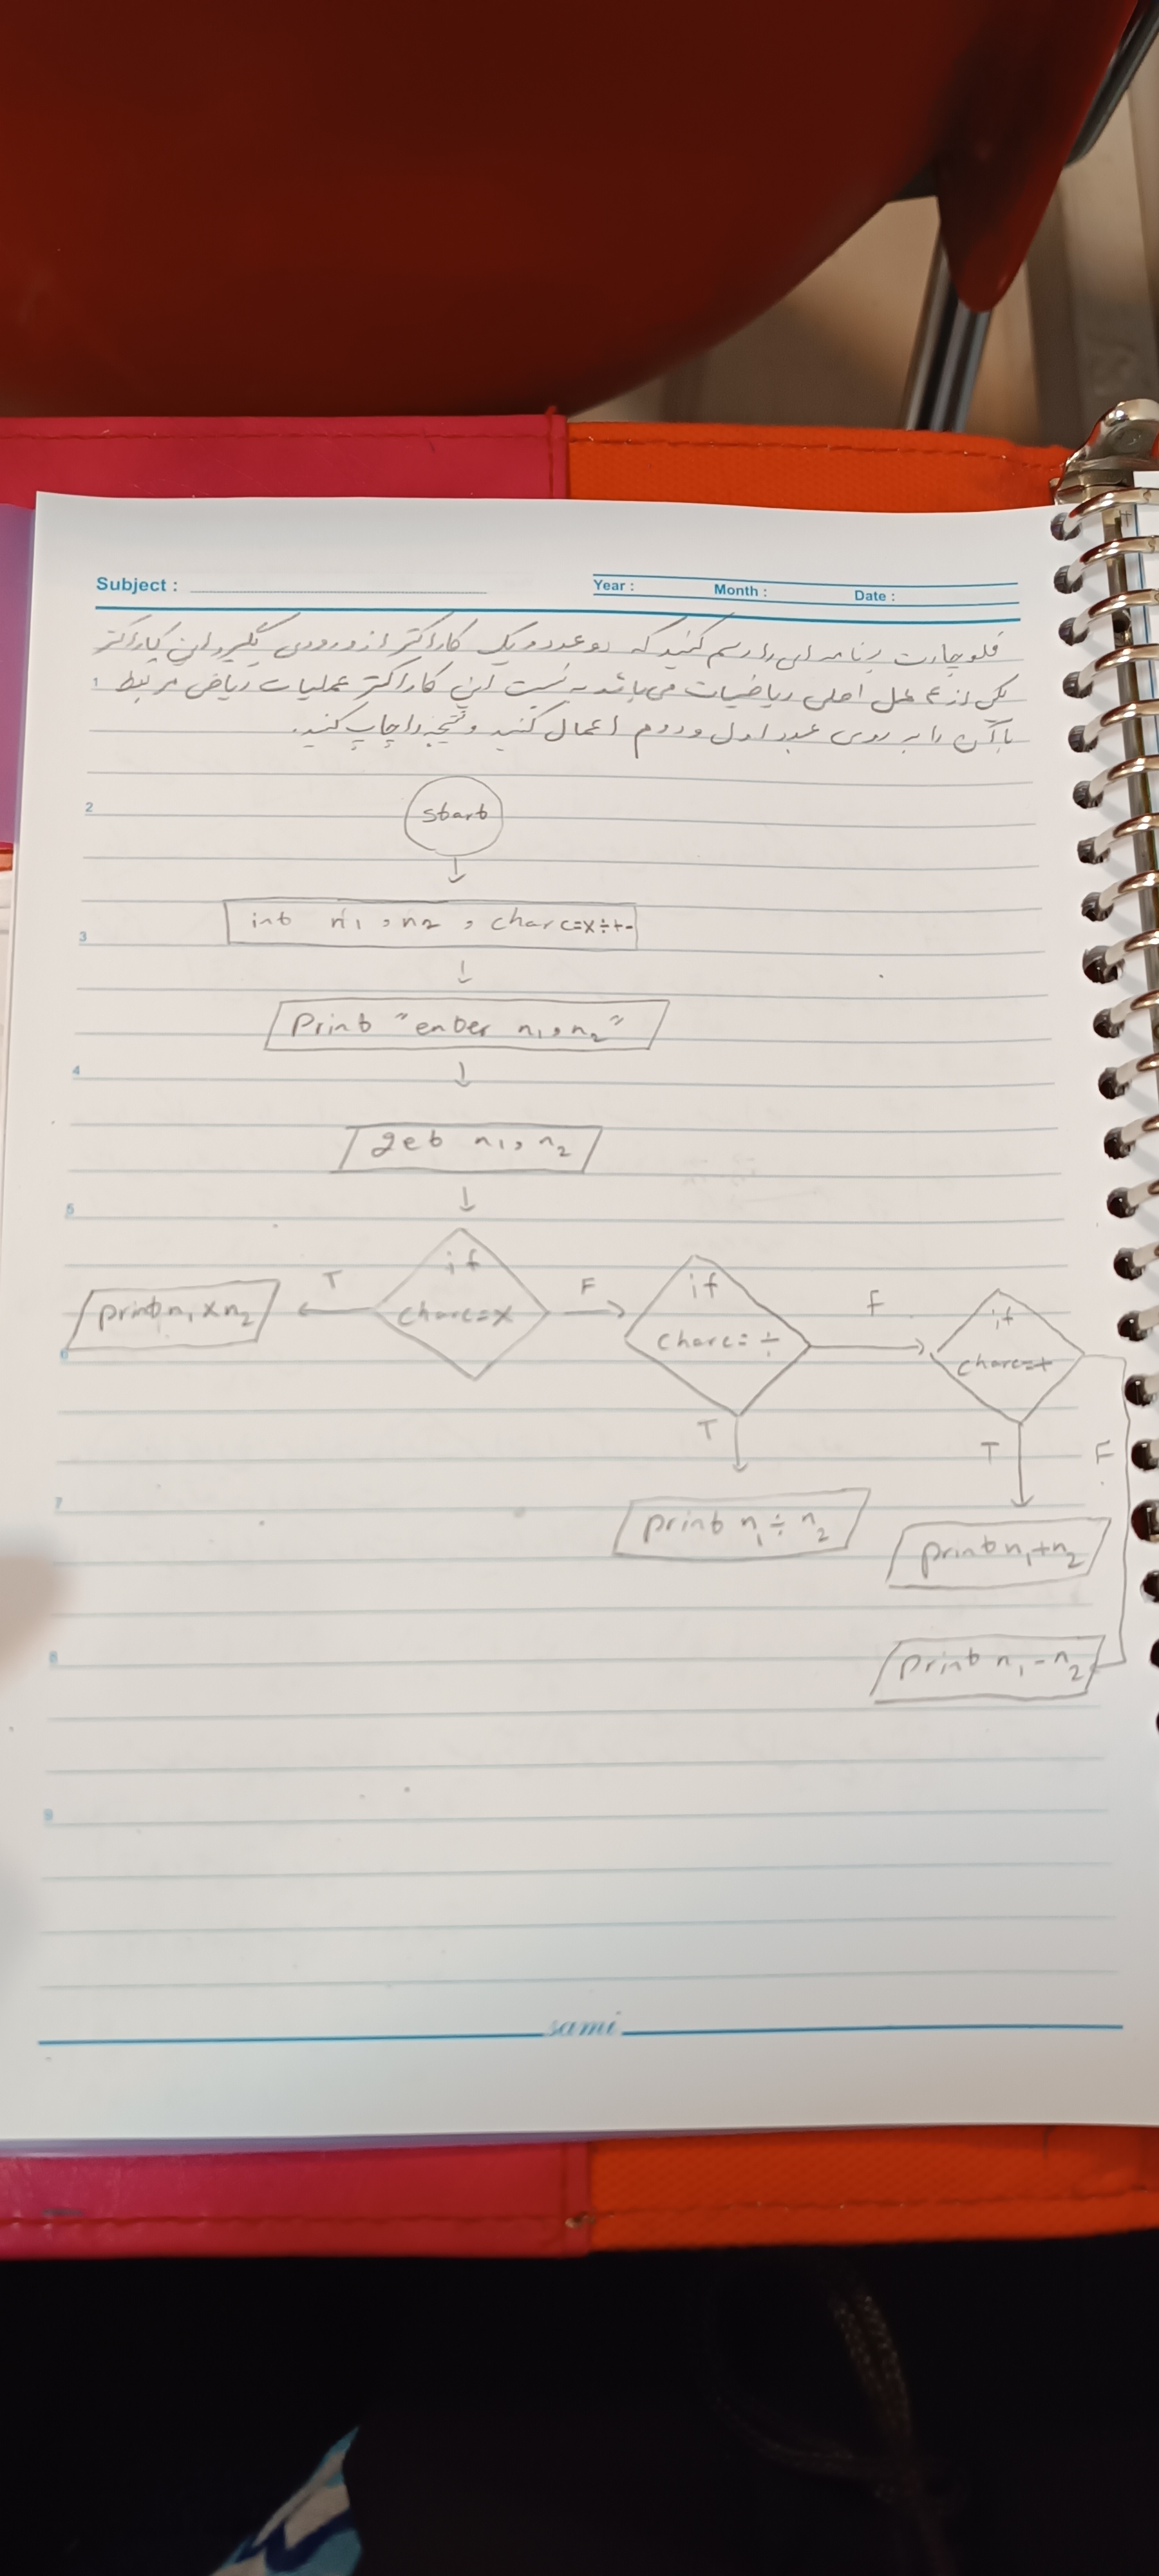 Subject :
Year : Month : Date :
فلوچارت برنامه ای را رسم کنید که دو عدد و یک کاراکتر از ورودی بگیرد این کاراکتر
یکی از ۴ عمل اصلی ریاضیات می باشد به نسبت این کاراکتر عملیات ریاضی مربوط
با آن را به روی عدد اول و دوم اعمال کنید و نتیجه را چاپ کنید.
2
start
int n1 , n2 , char c=x÷+-
3
Print "enter n1,n2"
4
get n1, n2
5
if char c=x
T
print n1 x n2
F
if char c= ÷
F
if char c=+
6
T
T
F
7
print n1 ÷ n2
print n1+n2
8
print n1 - n2
9
sami